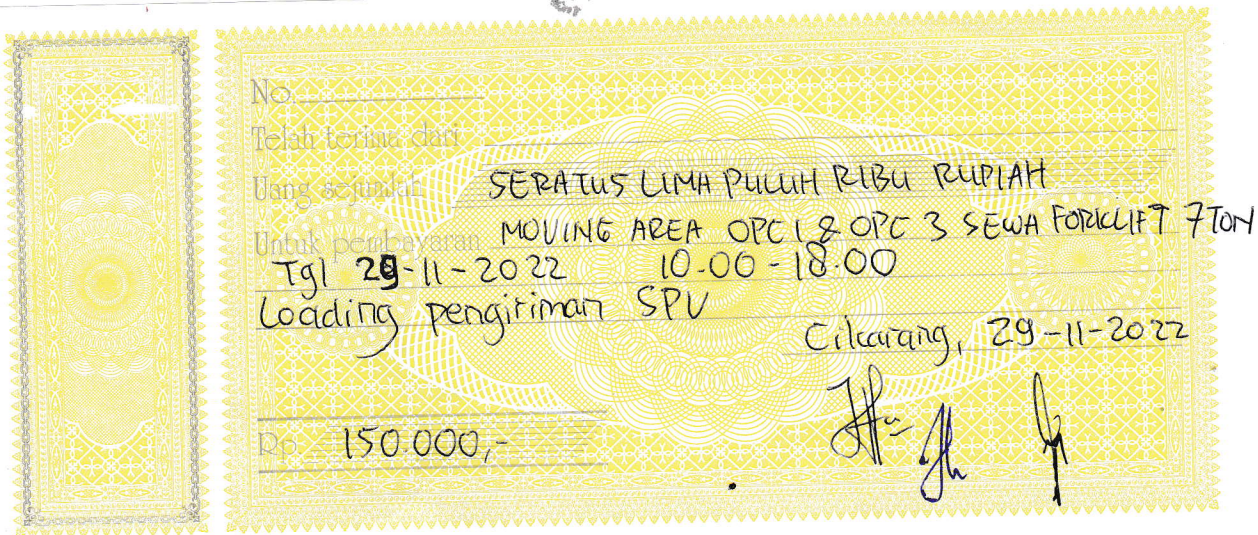 No.
Telah terima dari
Uang sejumlah SERATUS LIMA PULUH RIBU RUPIAH
Untuk pembayaran MOVING AREA OPC 1 & OPC 3 SEWA FORKLIFT 7 TON
Tgl 29-11-2022 10.00-18.00
Loading pengiriman SPV
Cikarang, 29-11-2022
Rp. 150.000,-